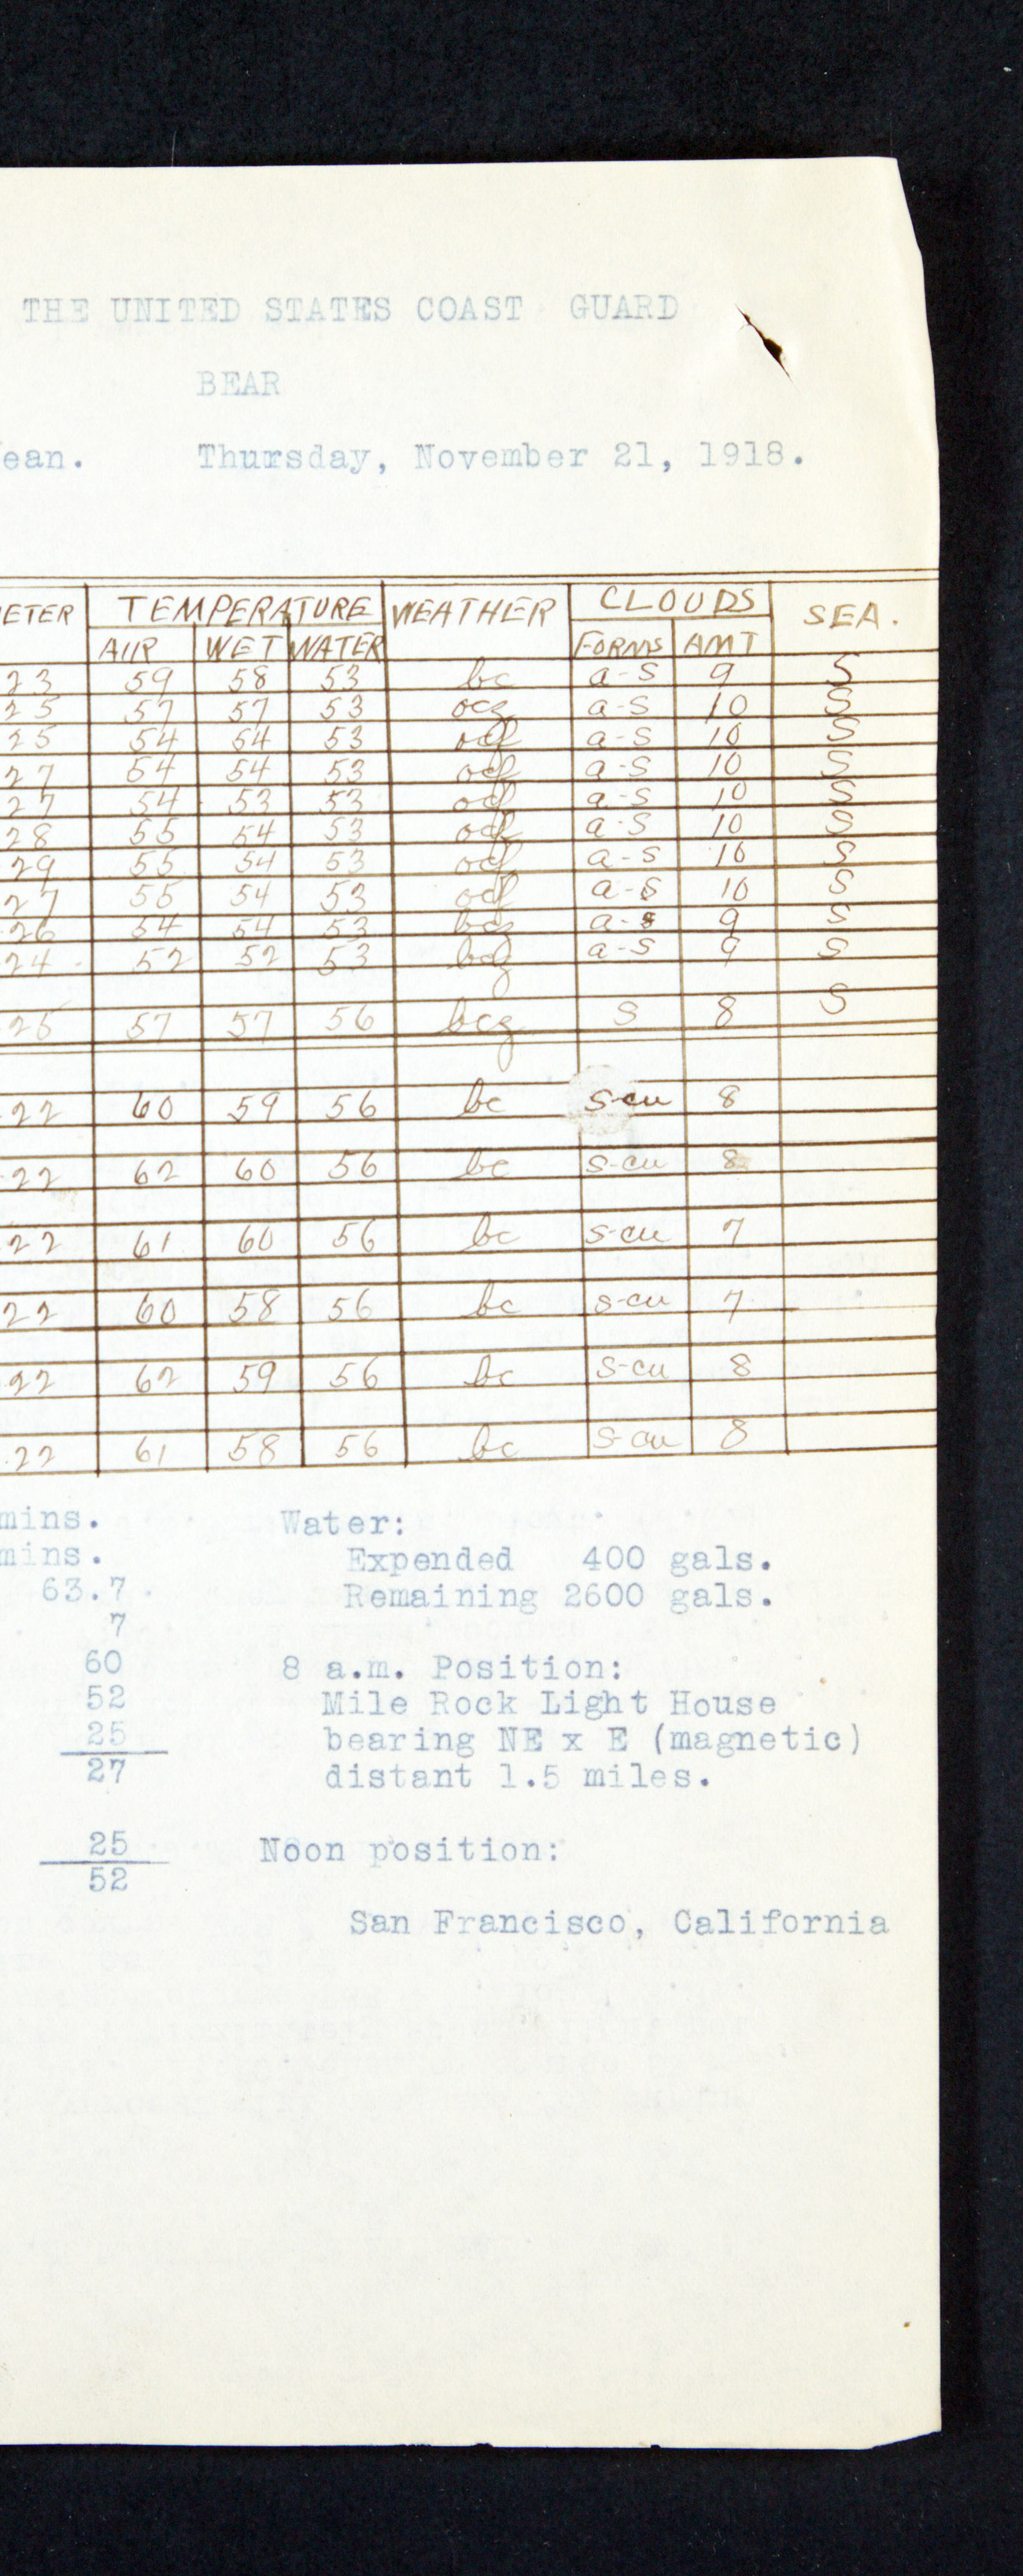 THE UNITED STATES COAST GUARD
BEAR
ean. Thursday, November 21, 1918.
ETER TEMPERATURE WEATHER CLOUDS SEA.
AIR WET WATER FORMS AMT
23 59 58 53 bc a-s 9 S
25 57 57 53 ocz a-s 10 S
25 54 54 53 ocf a-s 10 S
27 54 54 53 ocf a-s 10 S
27 54 53 53 ocf a-s 10 S
28 55 54 53 ocf a-s 10 S
29 55 54 53 ocf a-s 10 S
27 55 54 53 ocf a-s 10 S
26 54 54 53 bcz a-s 9 S
24 52 52 53 bcz a-s 9 S
25 57 57 56 bcz S 8 S
22 60 59 56 bc s-cu 8
22 62 60 56 bc s-cu 8
22 61 60 56 bc s-cu 7
22 60 58 56 bc s-cu 7
.22 62 59 56 bc s-cu 8
.22 61 58 56 bc s-cu 8
mins. Water:
mins. Expended 400 gals.
63.7 Remaining 2600 gals.
7
60 8 a.m. Position:
52 Mile Rock Light House
25 bearing NE x E (magnetic)
27 distant 1.5 miles.
25 Noon position:
52
San Francisco, California